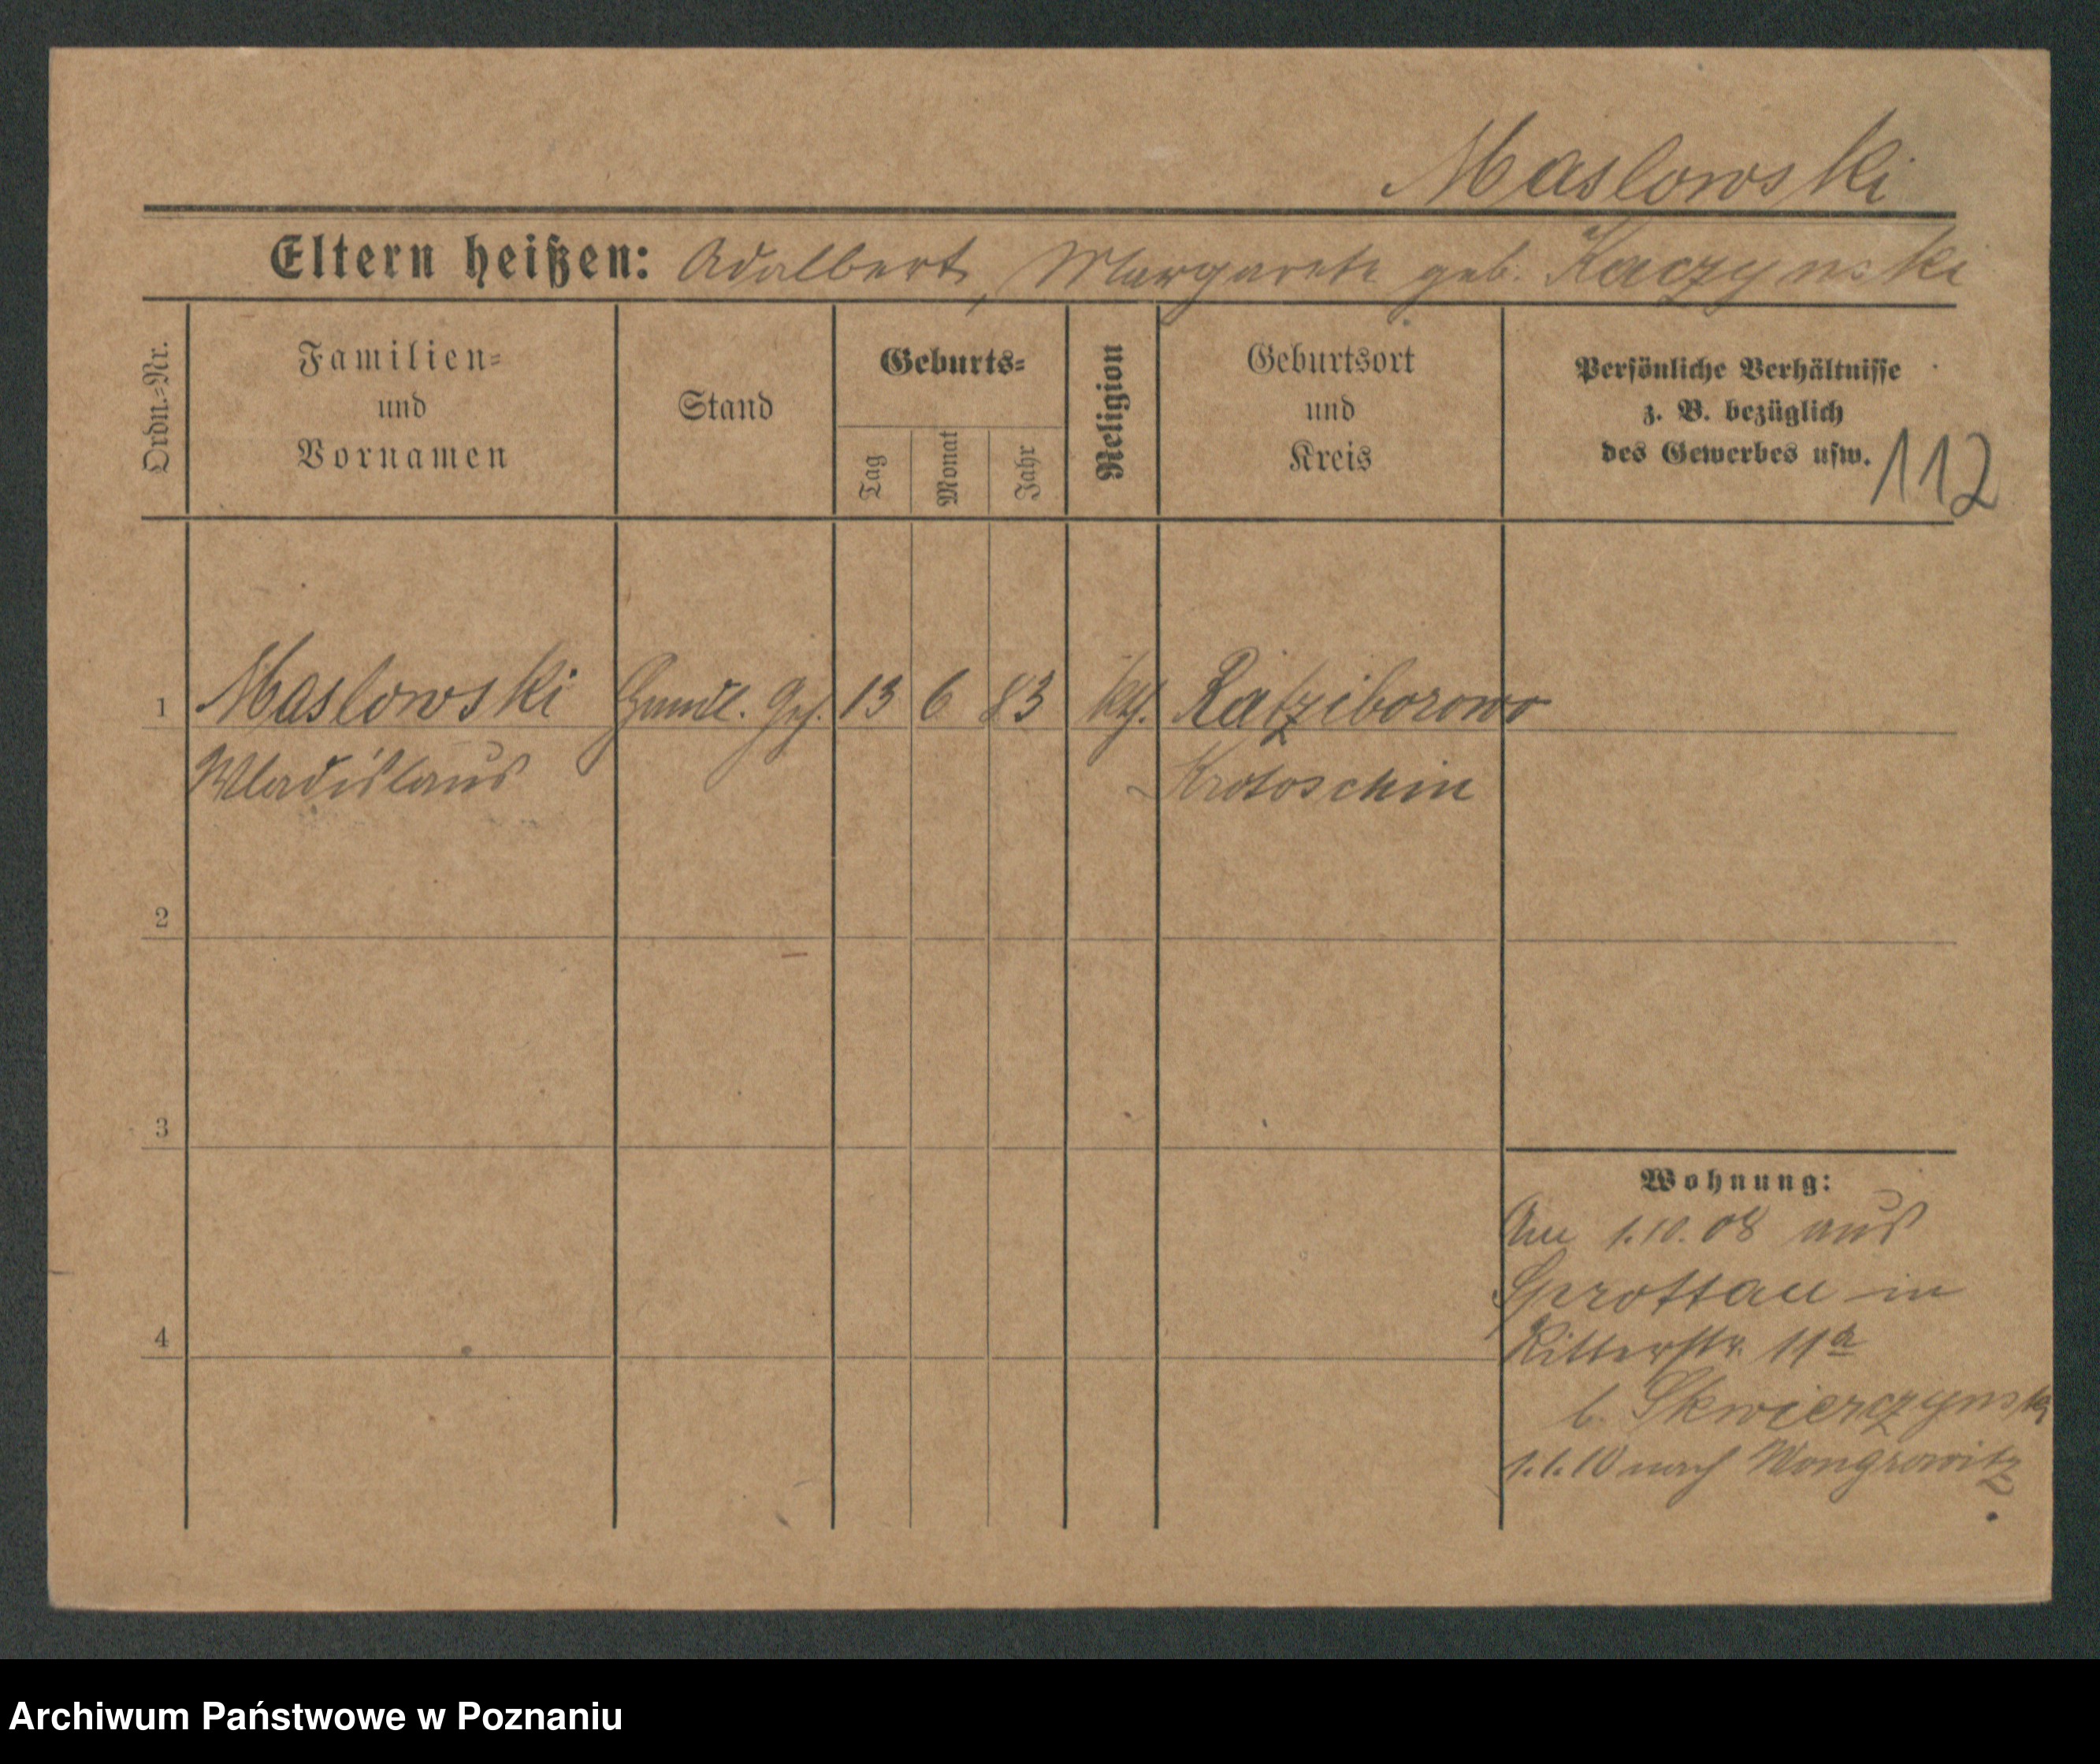 Maslowski
Eltern heißen: Adalbert, Margarete geb. Kaczynski
Ordn.=Nr.
Familien=
und
Vornamen
Stand
Geburts=
Tag
Monat
Jahr
Religion
Geburtsort
und
Kreis
Persönliche Verhältnisse
z. B. bezüglich
des Gewerbes usw.
112
1 Maslowski Handl. Geh. 13 6 83 kth. Ratziborowo
Wladislaus Krotoschin
2
3
4
Wohnung:
Am 1.10.08 aus
Sprottau in
Ritterstr. 11a
b. Skwierczynski
1.1.10 nach Wongrowitz
Archiwum Państwowe w Poznaniu